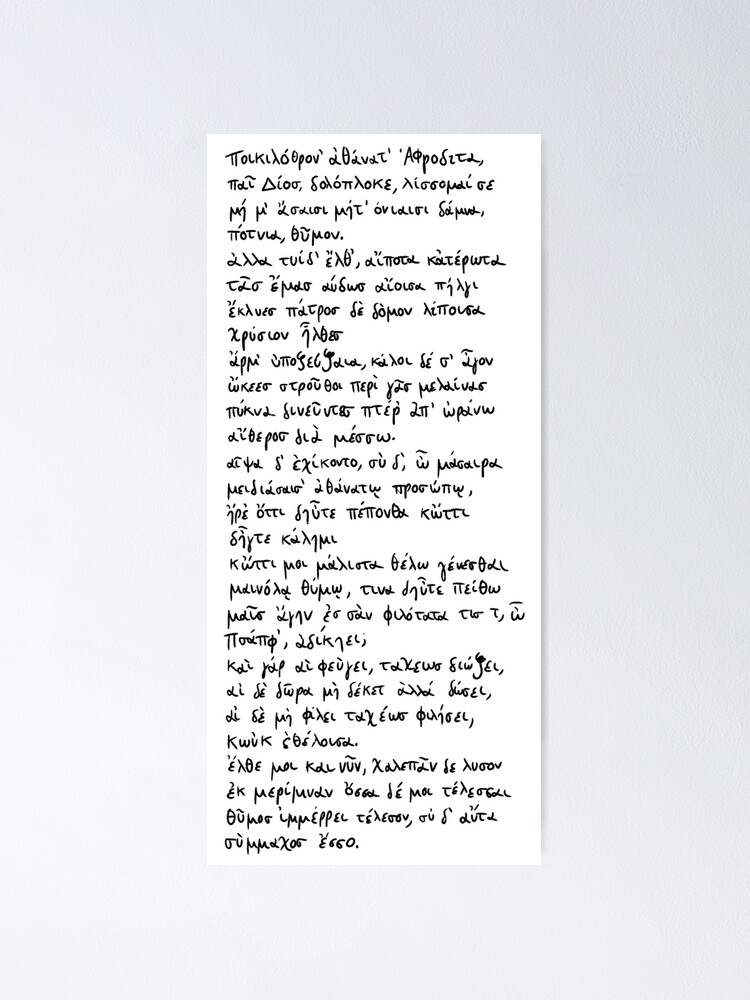 Ποικιλόθρον' ἀθάνατ' Ἀφροδιτα,
παῖ Δίοσ, δολόπλοκε, λίσσομαί σε
μή μ' ἄσαισι μήτ' όνιαισι δάμνα,
πότνια, θῦμον.
ἀλλα τυίδ' ἔλθ', αἴποτα κἀτέρωτα
τᾶσ ἔμασ αύδωσ αἴοισα πήλγι
ἔκλυεσ πάτροσ δὲ δὸμον λίποισα
χρύσιον ἦλθεσ
ἄρμ' ὐποζεύζαια, κάλοι δέ σ' ἆγον
ὤκεεσ στροῦθοι περὶ γᾶσ μελαίνασ
πύκνα δινεῦντεσ πτέῤ ἀπ' ὠράνω
αἴθεροσ διὰ μέσσω.
αῖψα δ' ἐχίκοντο, σὺ δ', ὦ μάσαιρα
μειδιάσαισ' ἀθάνατῳ προσώπῳ,
ἤρἐ ὄττι δηὖτε πέπονθα κὤττι
δἦγτε κάλημι
κὤττι μοι μάλιστα θέλω γένεσθαι
μαινόλᾳ θύμῳ, τινα δηὖτε πείθω
μαῖσ ἄγην ἐσ σὰν φιλότατα τισ τ, ὦ
Πσάπφ', ἀδίκηει;
καὶ γάρ αἰ φεύγει, ταχεωσ διώζει,
αἰ δὲ δῶρα μὴ δέκετ ἀλλά δώσει,
αἰ δὲ μὴ φίλει ταχέωσ φιλήσει,
κωὐκ ἐθέλοισα.
ἔλθε μοι και νῦν, χαλεπᾶν δε λυσον
ἐκ μερίμναν ὄσσα δέ μοι τέλεσσαι
θῦμοσ ἰμμέρρει τέλεσον, σύ δ' αὔτα
σὺμμαχοσ ἔσσο.